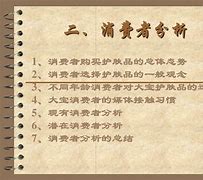 二、消费者分析
1、消费者购买护肤品的总体态势
2、消费者选择护肤品的一般观念
3、不同年龄消费者对大宝护肤
4、大宝消费者的媒体接触习惯
5、现有消费者分析
6、潜在消费者分析
7、消费者分析的总结